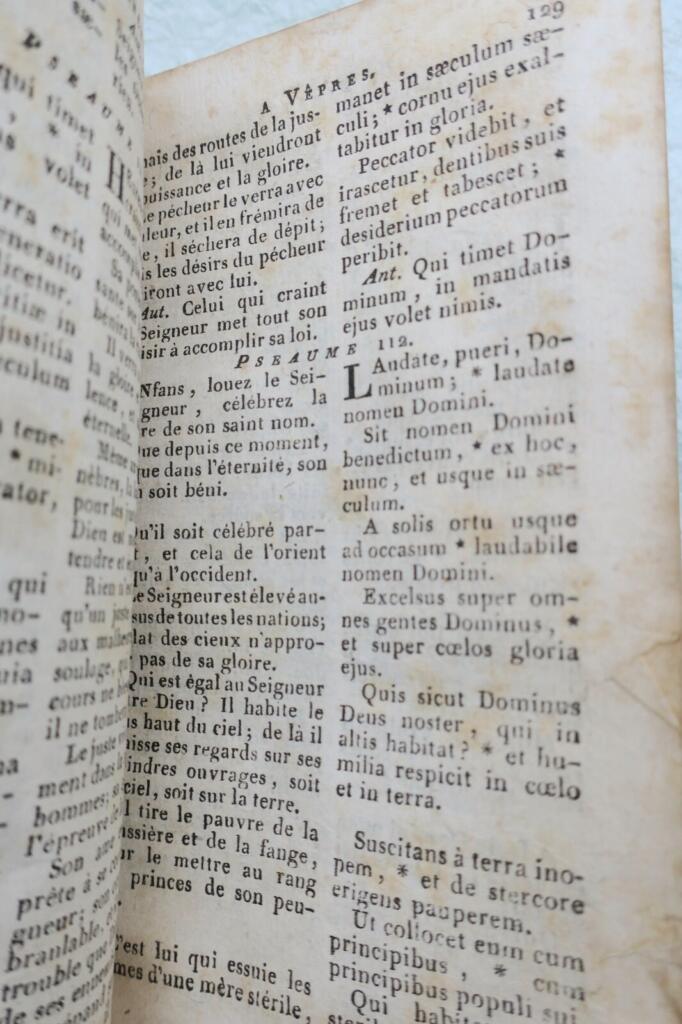 PSEAUME
qui timet
* in
s volet
rra erit
eneratio
dicetur.
itiæ in
justitia
culum
tene-
* mi-
ator,
qui
no-
nes
n-
pour les
Dien
tendre
Rien
qu'un
aux
soulage,
cours ne
il ne
Le juste
ment dans
hommes;
l'épreuve
Son
prête à
gneur; son
branlable,
trouble que
de ses
129
A VÊPRES.
mais des routes de la jus-
; de là lui viendront
puissance et la gloire.
e pécheur le verra avec
leur, et il en frémira de
e, il séchera de dépit;
is les désirs du pécheur
iront avec lui.
Aut. Celui qui craint
Seigneur met tout son
isir à accomplir sa loi.
PSEAUME 112.
Nfans, louez le Sei-
gneur, célébrez la
re de son saint nom.
ue depuis ce moment,
ue dans l'éternité, son
soit béni.
u'il soit célébré par-
t, et cela de l'orient
qu'à l'occident.
e Seigneur est élevé au-
sus de toutes les nations;
lat des cieux n'appro-
pas de sa gloire.
Qui est égal au Seigneur
re Dieu? Il habite le
s haut du ciel; de là il
isse ses regards sur ses
indres ouvrages, soit
ciel, soit sur la terre.
l tire le pauvre de la
ussière et de la fange,
r le mettre au rang
princes de son peu-
'est lui qui essuie les
mes d'une mère stérile,
manet in sæculum sæ-
culi; * cornu ejus exal-
tabitur in gloria.
Peccator videbit, et
irascetur, dentibus suis
fremet et tabescet; *
desiderium peccatorum
peribit.
Ant. Qui timet Do-
minum, in mandatis
ejus volet nimis.
LAudate, pueri, Do-
minum; * laudate
nomen Domini.
Sit nomen Domini
benedictum, * ex hoc,
nunc, et usque in sæ-
culum.
A solis ortu usque
ad occasum * laudabile
nomen Domini.
Excelsus super om-
nes gentes Dominus, *
et super cœlos gloria
ejus.
Quis sicut Dominus
Deus noster, qui in
altis habitat? * et hu-
milia respicit in cœlo
et in terra.
Suscitans à terra ino-
pem, * et de stercore
erigens pauperem.
Ut collocet eum cum
principibus, * cum
principibus populi sui
Qui habit